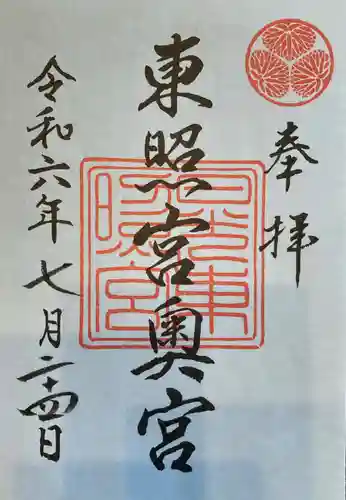 奉拝
東照宮奥宮
令和六年七月二十四日